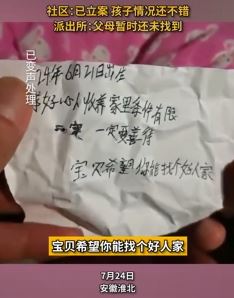 社区:已立案 孩子情况还不错
派出所:父母暂时还未找到
已变声处理
19年6月21日出生
好心人收养家里条件有限
一定要善待
宝贝希望你能找个好人家
宝贝希望你能找个好人家
7月24日
安徽淮北